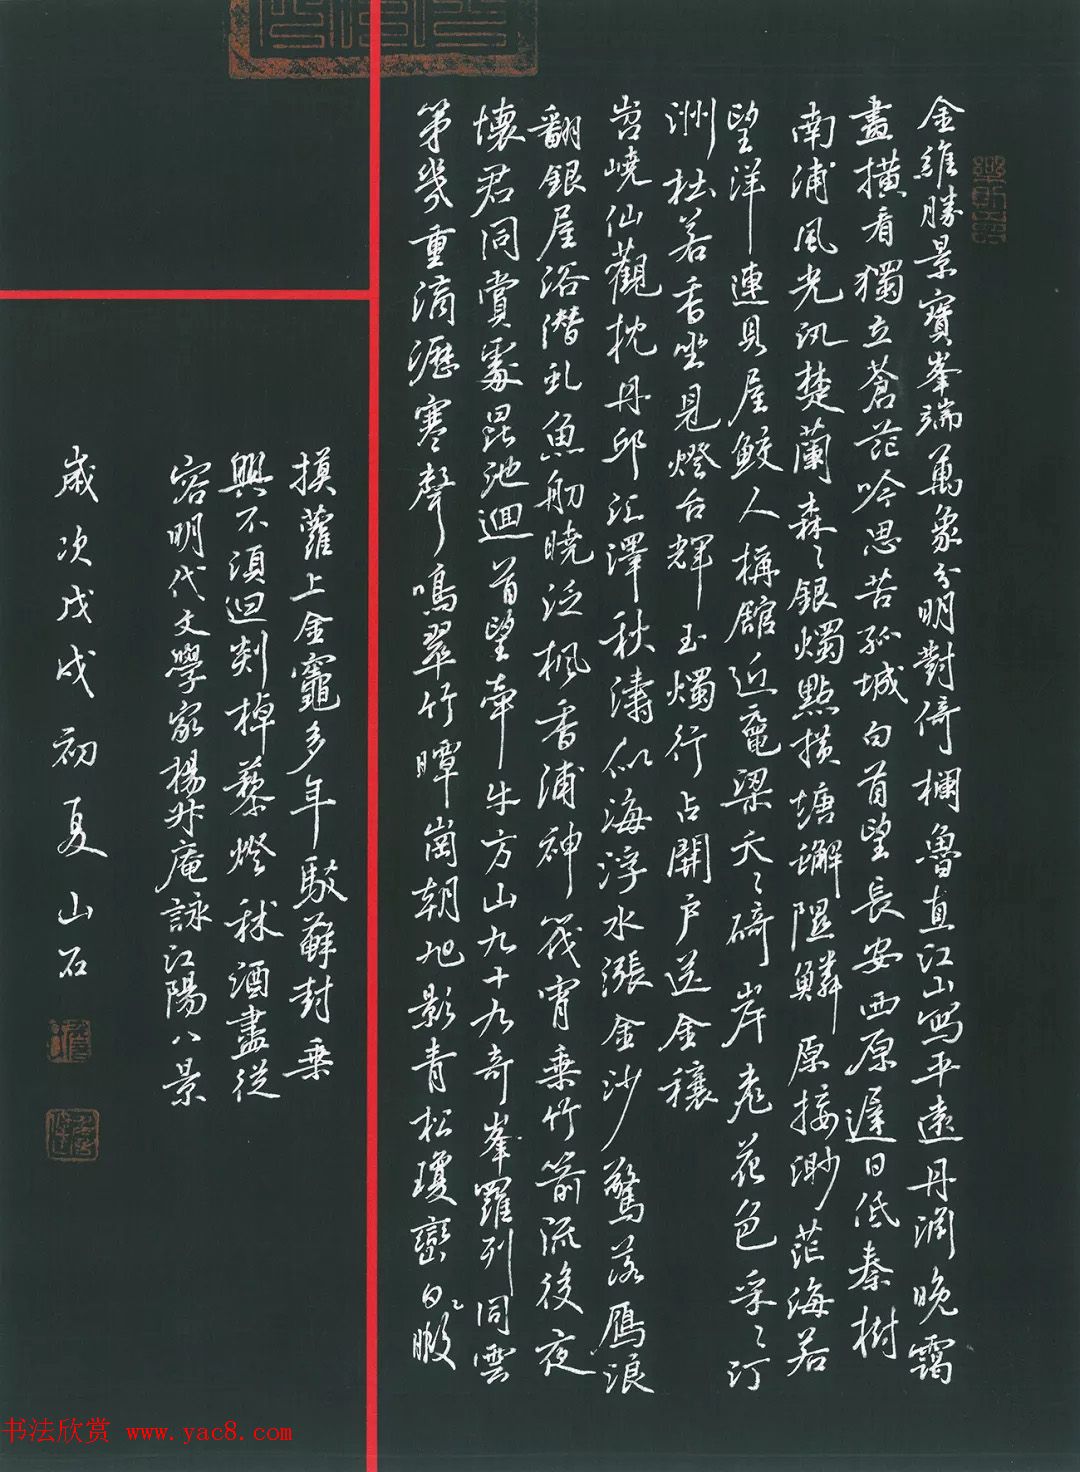 金維勝景寶峯端萬象分明對倚欄魯直江山寫平遠丹淵晚靄
畫橫看獨立蒼茫吟思苦孤城白首望長安西原遲日低秦樹
南浦風光汎楚蘭森々銀燭點橫塘躃隰鱗原接渺茫海若
望洋連貝屋鮫人構館近黿梁夭々碕岸尨花色采々汀
洲杜若香坐見燈台輝玉燭行占開戶送金穰
岧嶢仙觀枕丹邱江澤秋濤似海浮水漲金沙驚落雁浪
翻銀屋浴潛虬魚舠曉泛楓香浦神筏宵乘竹箭流後夜
懷君同賞處昆池迴首望牽牛方山九十九奇峯羅列同雲
第幾重滴瀝寒聲鳴翠竹曈曨朝旭影青松瓊巒白々
摸蘿上金竈多年駮蘚封乘
興不須迴剡棹藜燈秫酒盡從
容明代文學家楊升庵詠江陽八景
歲次戊戌初夏山石
书法欣赏 www.yac8.com